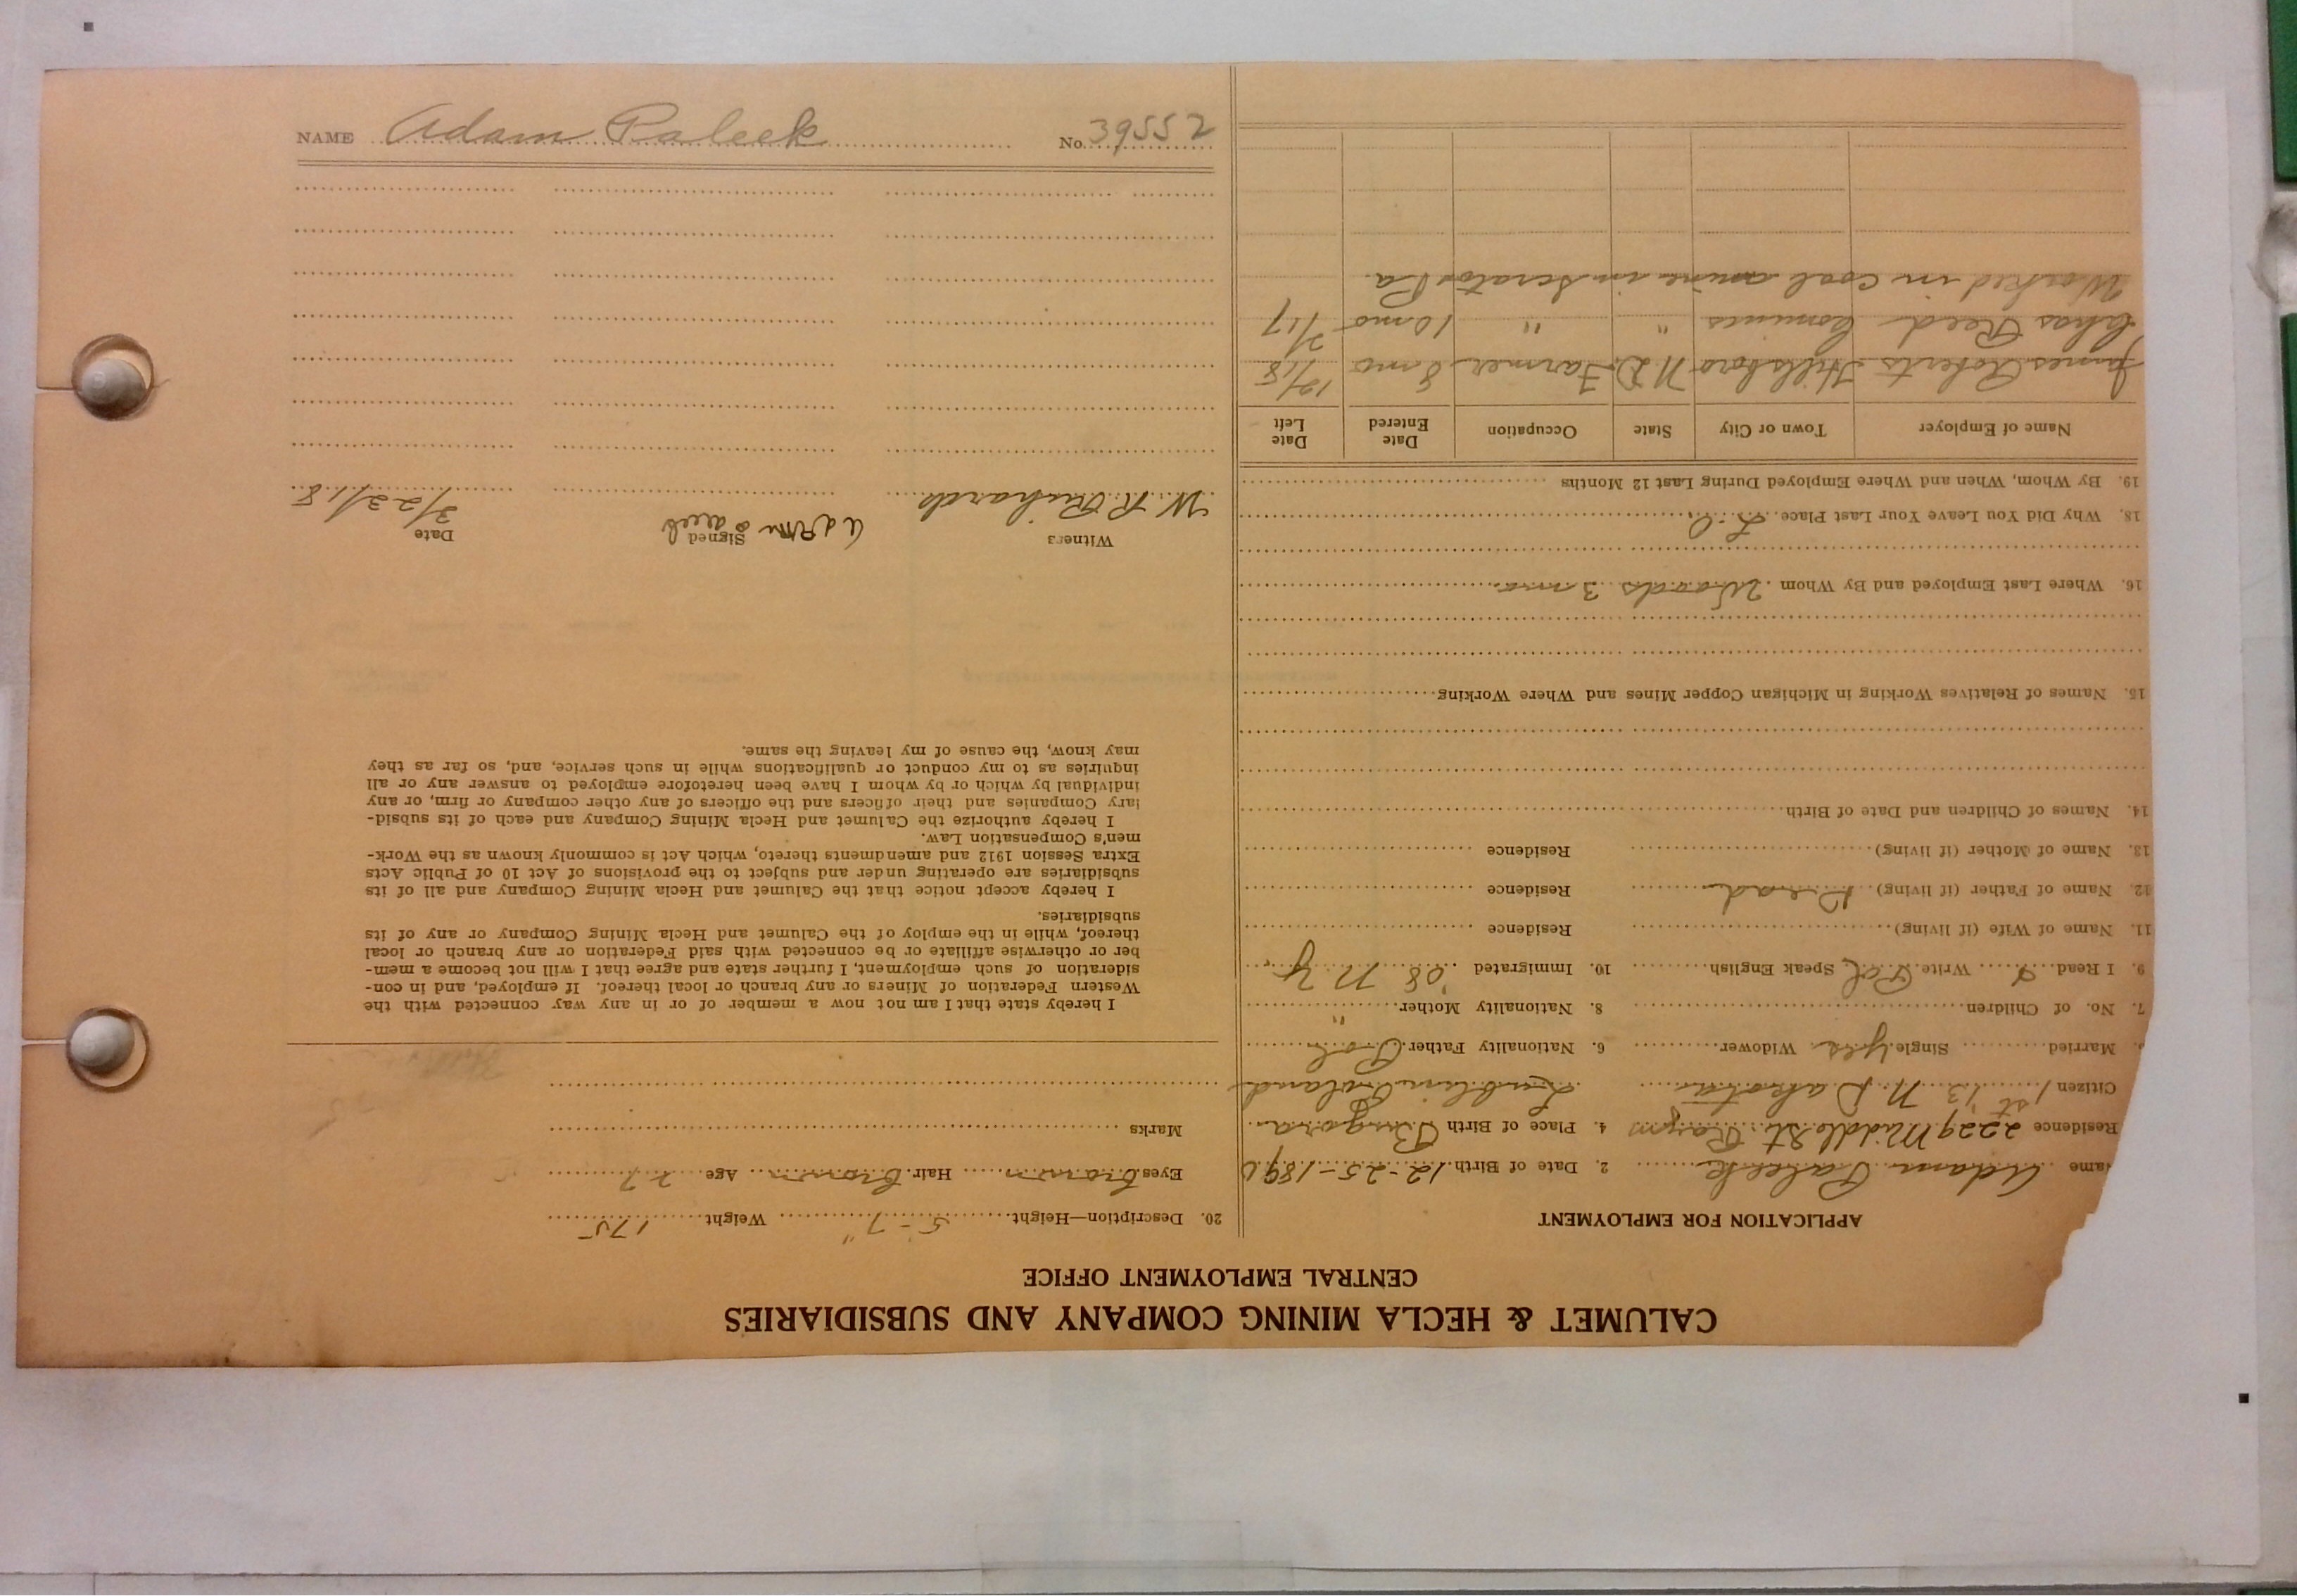 CALUMET & HECLA MINING COMPANY AND SUBSIDIARIES
CENTRAL EMPLOYMENT OFFICE
APPLICATION FOR EMPLOYMENT
ame Adam Paleek 2. Date of Birth 12-25-1890
Residence 2229 Middle St 4. Place of Birth
Citizen 1st 13 N. Dakota Lublin Poland
Married Single yes Widower 6. Nationality Father Pol
7. No. of Children 8. Nationality Mother "
9. I Read Write Pol Speak English 10. Immigrated '08 N Y
11. Name of Wife (if living) Residence
12. Name of Father (if living) Dead Residence
13. Name of Mother (if living) Residence
14. Names of Children and Date of Birth
15. Names of Relatives Working in Michigan Copper Mines and Where Working
16. Where Last Employed and By Whom Woods 3 mo
18. Why Did You Leave Your Last Place
19. By Whom, When and Where Employed During Last 12 Months
Name of Employer Town or City State Occupation Date Entered Date Left
James Roberts Hillsboro N.D. Farmer 8 mo 12/18
Chas Reed " " 10 mo 2/17
Worked in coal mine in Pa.
20. Description—Height 5-7" Weight 175
Eyes brown Hair brown Age 27
Marks
I hereby state that I am not now a member of or in any way connected with the
Western Federation of Miners or any branch or local thereof. If employed, and in con-
sideration of such employment, I further state and agree that I will not become a mem-
ber or otherwise affiliate or be connected with said Federation or any branch or local
thereof, while in the employ of the Calumet and Hecla Mining Company or any of its
subsidiaries.
I hereby accept notice that the Calumet and Hecla Mining Company and all of its
subsidiaries are operating under and subject to the provisions of Act 10 of Public Acts
Extra Session 1912 and amendments thereto, which Act is commonly known as the Work-
men's Compensation Law.
I hereby authorize the Calumet and Hecla Mining Company and each of its subsid-
iary Companies and their officers and the officers of any other company or firm, or any
individual by which or by whom I have been heretofore employed to answer any or all
inquiries as to my conduct or qualifications while in such service, and, so far as they
may know, the cause of my leaving the same.
Witness Signed Date
W. R. Richards Adam 3/22/18
NAME Adam Paleek No. 39552